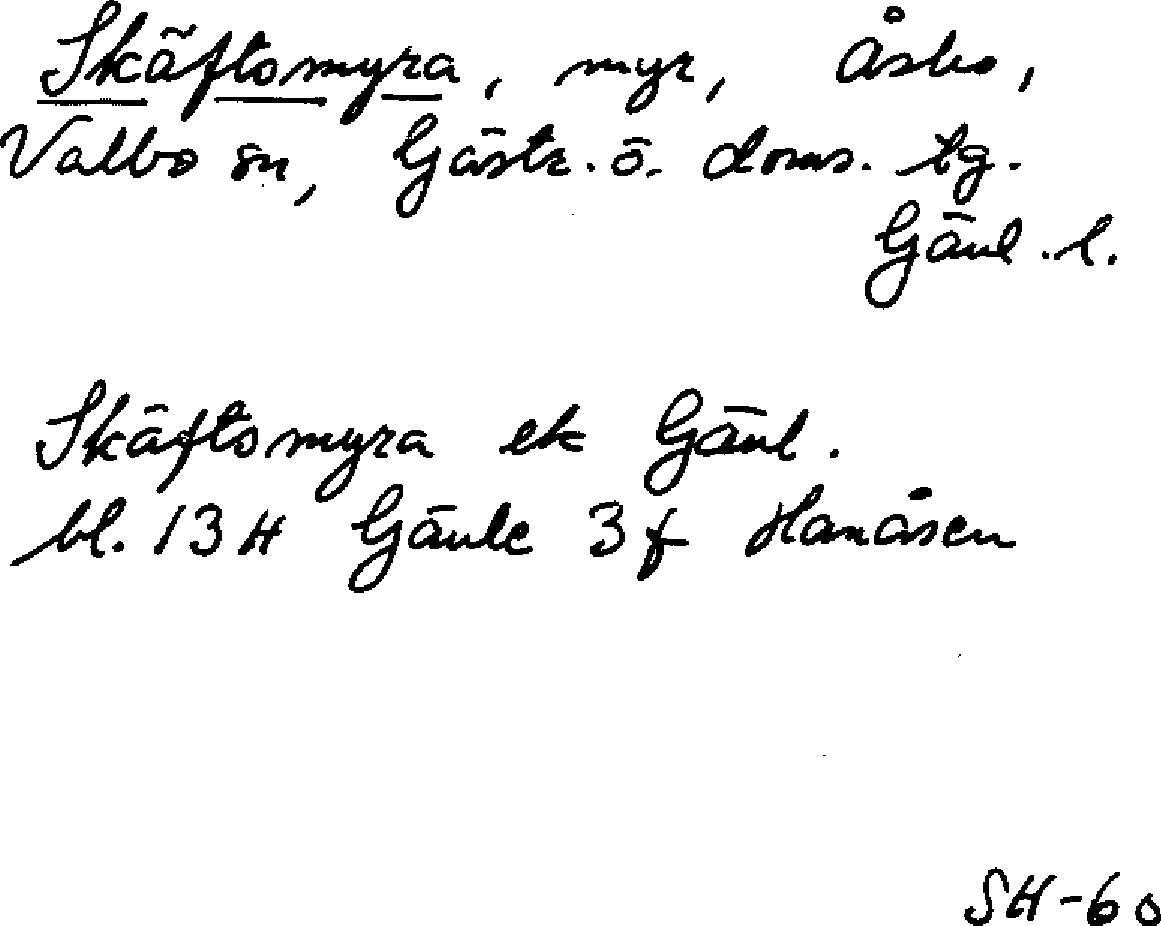 Skäftomyra, myr, Åsbo,
Valbo sn, Gästr. ö. doms. tg.
Gävl. l.
Skäftomyra ek Gävl.
bl. 13H Gävle 3f Hanåsen
SH-60